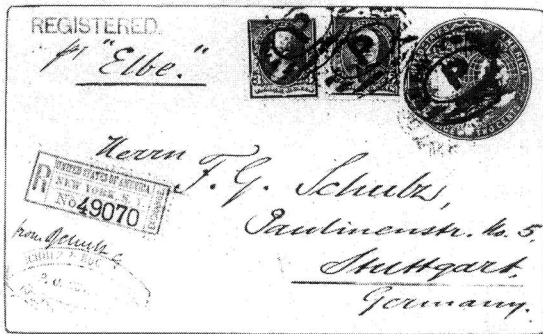 REGISTERED.
pr "Elbe."
UNITED STATES AMERICA
TWO CENTS
Herrn
F. G. Schulz,
Paulinenstr. No. 5,
Stuttgart,
Germany.
R
UNITED STATES OF AMERICA
NEW YORK N.Y.
No 49070
from Schulz